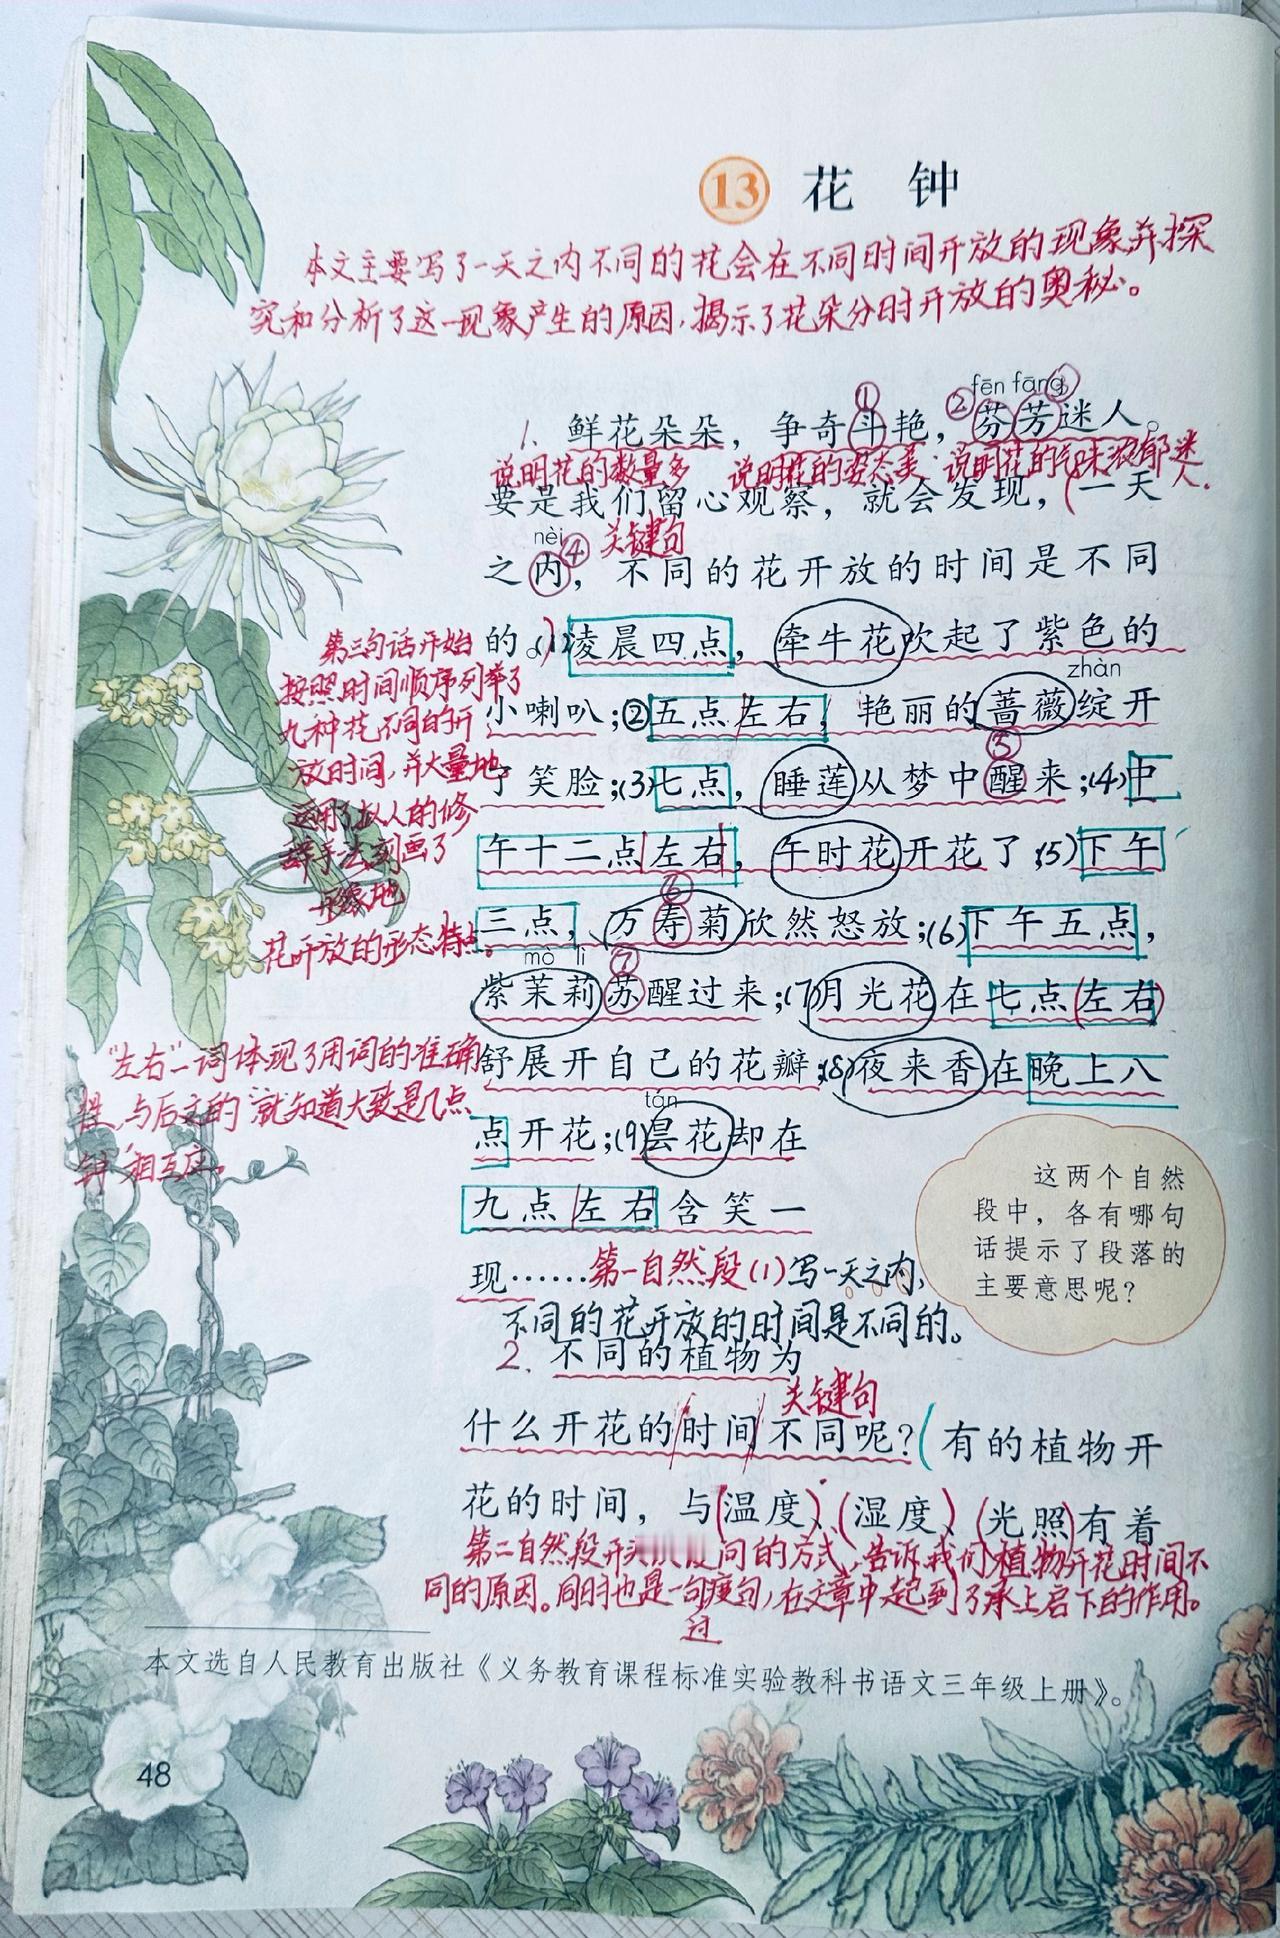 13 花 钟
本文主要写了一天之内不同的花会在不同时间开放的现象并探
究和分析了这一现象产生的原因,揭示了花朵分时开放的奥秘。
fēn fāng
① ② ③
1. 鲜花朵朵，争奇斗艳，芬芳迷人。
说明花的数量多 说明花的姿态美 说明花的气味浓郁迷人.
要是我们留心观察，就会发现，(一天
nèi ④ 关键句
之内，不同的花开放的时间是不同
的。)(1)凌晨四点，牵牛花吹起了紫色的
zhàn
小喇叭;②五点左右，艳丽的蔷薇绽开
⑤
了笑脸;(3)七点，睡莲从梦中醒来;(4)中
午十二点左右，午时花开花了;(5)下午
⑥
三点，万寿菊欣然怒放;(6)下午五点，
mò lì ⑦
紫茉莉苏醒过来;(7)月光花在七点(左右)
舒展开自己的花瓣;(8)夜来香在晚上八
tán
点开花;(9)昙花却在
九点左右含笑一
现……第一自然段(1)写一天之内,
不同的花开放的时间是不同的。
第三句话开始
按照时间顺序列举了
九种花不同的开
放时间,并大量地
运用了拟人的修
辞手法,刻画了
形象地
花开放的形态特点。
"左右"一词体现了用词的准确
性,与后文的"就知道大致是几点
钟"相互应。
这两个自然
段中，各有哪句
话提示了段落的
主要意思呢？
2. 不同的植物为
关键句
什么开花的时间不同呢？(有的植物开
花的时间，与(温度)、(湿度)、(光照)有着
第二自然段开头问的方式,告诉我们植物开花时间不
同的原因。同时也是一句渡句,在文章中起到了承上启下的作用。
过
本文选自人民教育出版社《义务教育课程标准实验教科书语文三年级上册》。
48